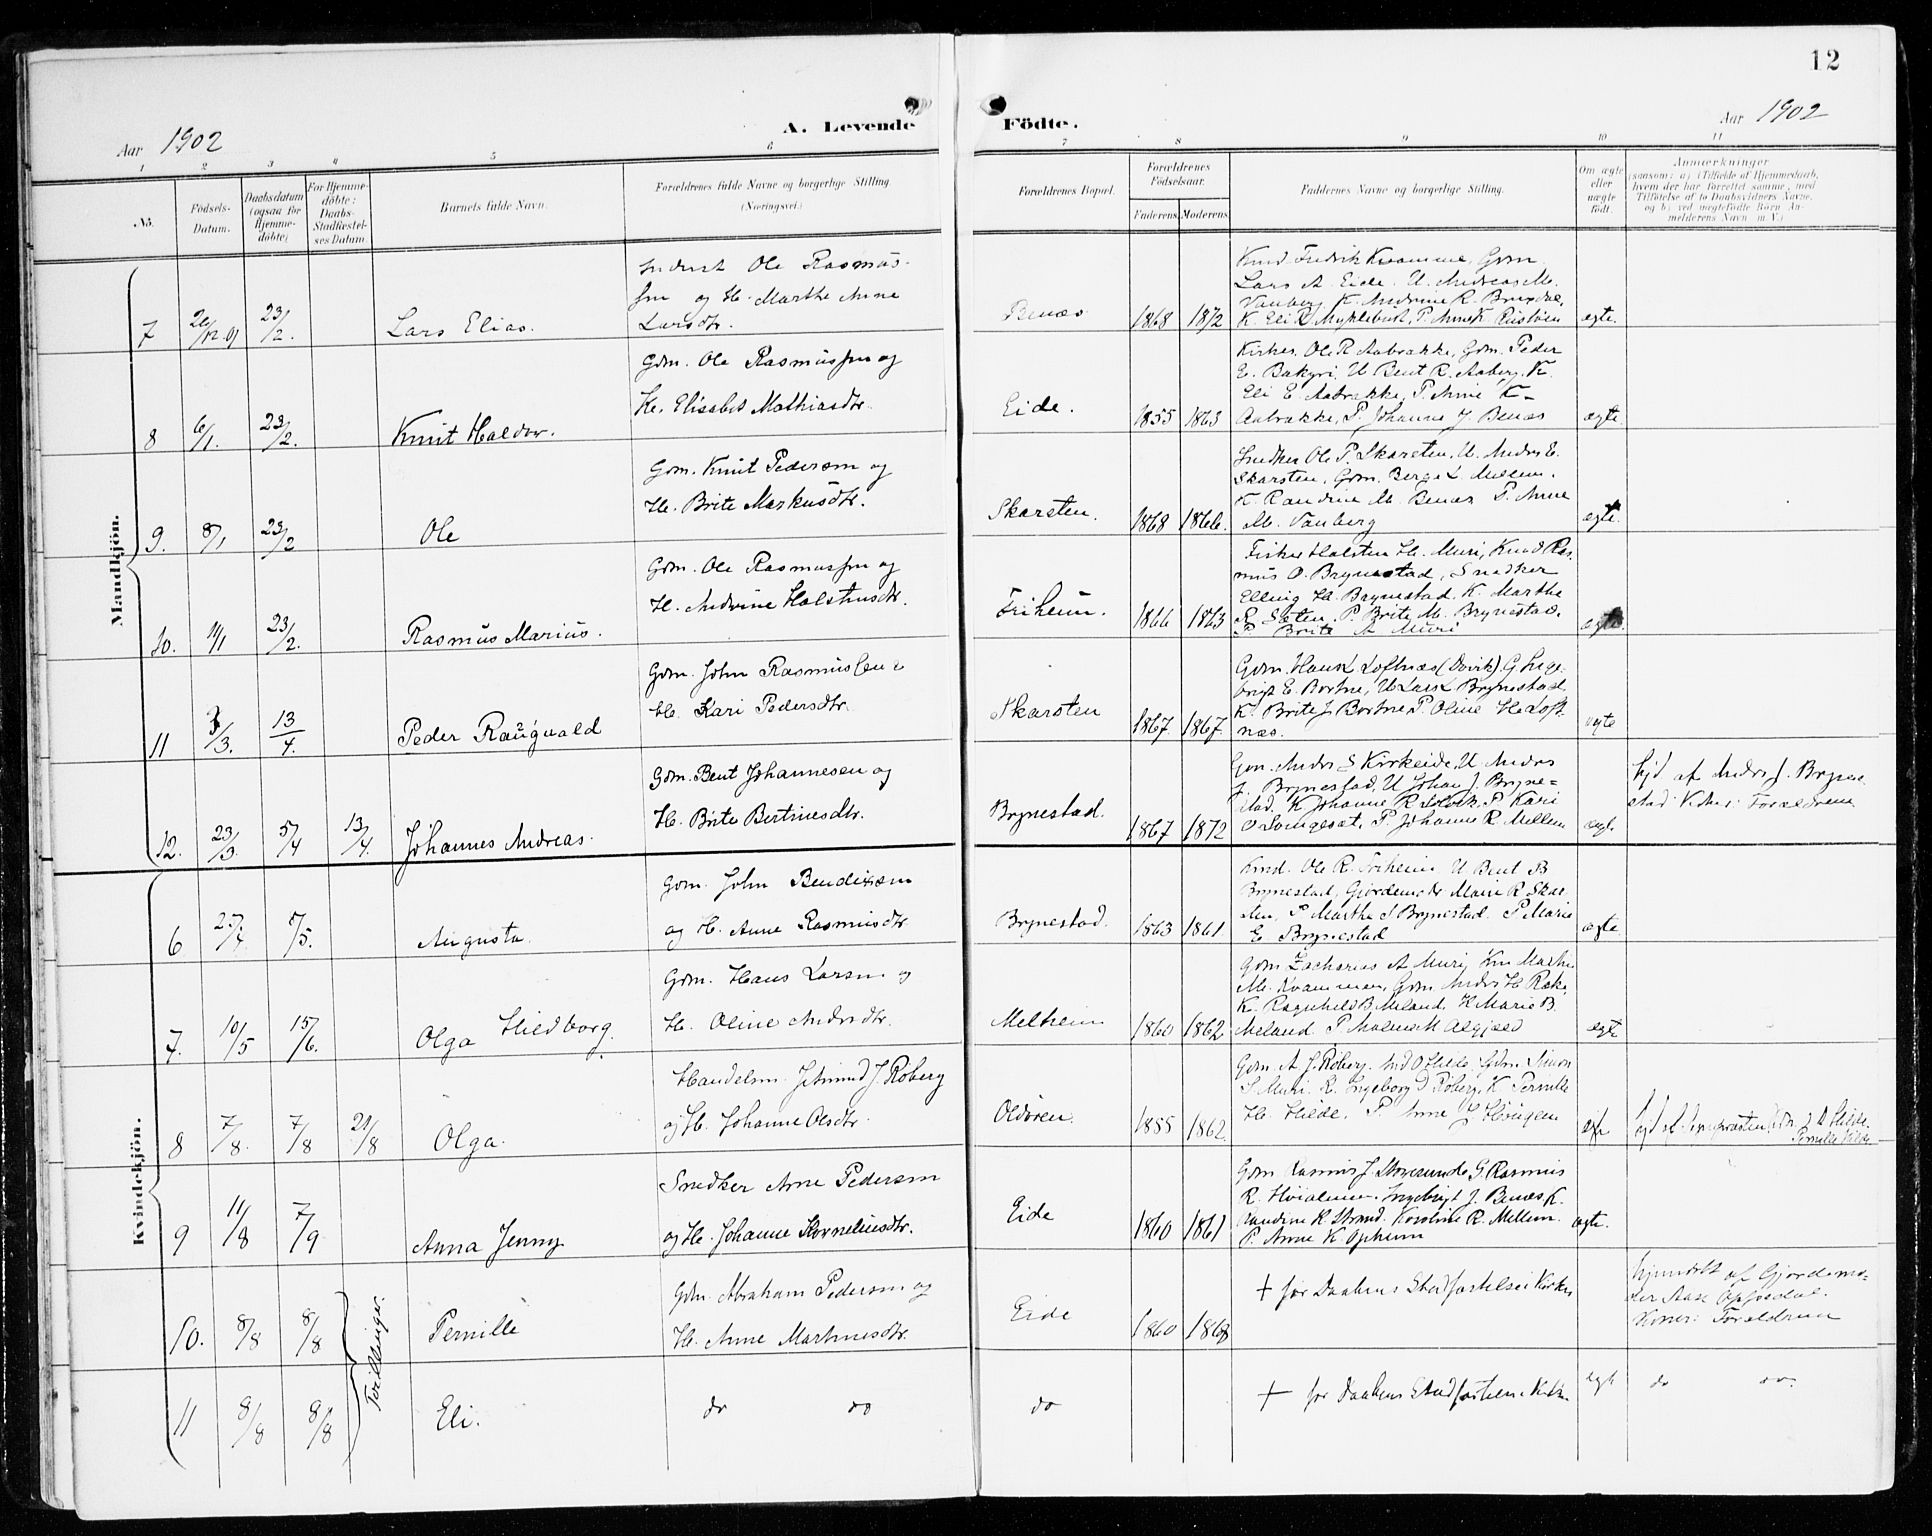 12
Aar 1902
A. Levende Födte.
Aar 1902
1 2 3 4 5 6 7 8 9 10 11
No.
Födsels-Datum.
Daabsdatum (ogsaa for Hjemme-döbte)
For Hjemme-döbte: Daabs-Stadfæstel-ses Datum
Barnets fulde Navn.
Forældrenes fulde Navne og borgerlige Stilling.
(Næringsvei.)
Forældrenes Bopæl.
Forældrenes Födselsaar.
Faderens. Moderens.
Faddernes Navne og borgerlige Stilling.
Om ægte eller uægte födt.
Anmærkninger
(saasom: a) i Tilfælde af Hjemmedaab,
hvem der har forrettet samme, med
Tilföielse af to Daabsvidners Navne,
og b) ved uægtefödte Börn An-
melderens Navn m. V.)
Mandkjön.
7 26/12 01 23/2. Lars Elias.
Inderst Ole Rasmus-
sen og H. Marthe Anne
Larsdtr.
Benæs 1868 1872
Lars A. Eide. U. Andreas M.
Vanberg K. Andrine R. Bruxdal,
K. Eli R Myklebust, P. Anne K. Rustöen
ægte.
8 6/1. 23/2. Knut Haldor.
Gdm. Ole Rasmussen og
H. Elisabet Mathiasdtr.
Eide. 1855 1863
Kirkes. Ole R Aabrække, Gdm. Peder
E. U Bent R. Aaberg. K.
Eli E. Aabrække, P. Anne K-
Aabrække, P. Johanne J. Benæs
ægte
9. 8/1 23/2 Ole
Gdm. Knut Pedersen og
H. Brite Markusdtr.
Skarsten. 1868 1866.
Snedker Ole P. Skarsten, U. Anders E.
Skarsten, Gdm. Berge L. Mellem.
K. Randine M. Benæs P. Anne
M. Vanberg
ægte.
10. 11/1 23/2. Rasmus Marius.
Gdm. Ole Rasmussen og
H. Andrine Holstensdtr.
Friheim. 1866 1863
Fisker Holsten H. Muri, Knud Ras.
mus O. Brynestad, Snedker
Elling H. Brynestad K. Marthe
R. Sæten, P. Brite M. Brynestad.
P Brite A Muri
ægte.
11 3/3. 13/4. Peder Raugnvald
Gdm. John Rasmussen &
H. Kari Pedersdtr.
Skarsten 1867 1867
Gdm. Hans L Loftnæs (Davik) G. Inge-
brigt E. Bortne, U Lars L Brynestad
K. Brite J Bortne P. Oline H. Loft
næs.
ægte
12. 23/3. 5/4 13/4. Johannes Andreas.
Gdm. Bent Johannesen og
H. Brite Bertinesdtr.
Brynestad. 1867 1872
Gdm. Anders S Kirkeide, U Anders
J. Brynestad, U Johan J. Bryne=
stad. K Johanne R. P. Kari
P. Johanne R. Mellem
ægte
hjd af Anders J. Bryne
stad Vidner: Forældrene
Kvindekjön.
6 25/4 7/5. Augusta.
Gdm. John Bendixsen
og H. Anne Rasmusdtr
Brynestad. 1863 1861
Ole R. Friheim U Bent B
Brynestad, Marie R Skar
sten, P Marthe S Brynestad. P Marie
E Brynestad
ægte
7. 10/5 15/6. Olga Hildborg.
Gdm. Hans Larsen og
H. Oline Andersdtr.
Melheim 1860 1862
Gdm Zacharias A Muri,
M. Gdm Anders H Rake
K. Ragnhild B Meland, K Marie B.
Meland P Malene M Algjæld
ægte
8 7/8. 7/8 21/8 Olga.
Handelsm. J. Amund J. Roberg
og H. Johanne Olsdtr.
Oldören. 1855 1862
Gdm A J. Roberg. Gdm. Simon
S. Muri. K. Ingeborg D Roberg, K. Pernille
H. Hilde. P. Anne
Pernille Hilde
9 11/8 7/9 Anna Jenny
Snedker Arne Pedersen
og H. Johanne Korneliusdtr.
Eide 1860 1861
Gdm Rasmus J. G. Rasmus
R. Ingebrigt J. Benæs K.
Randine K. Strand. Karoline R. Mellem.
P. Anne K. Opheim
ægte.
10. 8/8 8/8 Trillinger. Pernille
Gdm. Abraham Pedersen og
H. Anne Martinusdtr.
Eide 1860 1868
+ før Daabens Stadfæstelse i Kirken
hjemdøbt af Gjordemo-
der Aase Opheisdal.
Vidner: Forældrene
11 8/8 8/8 Eli. do do do
+ før Daabens Stadfæstelse i Kirk.
ægte do do.